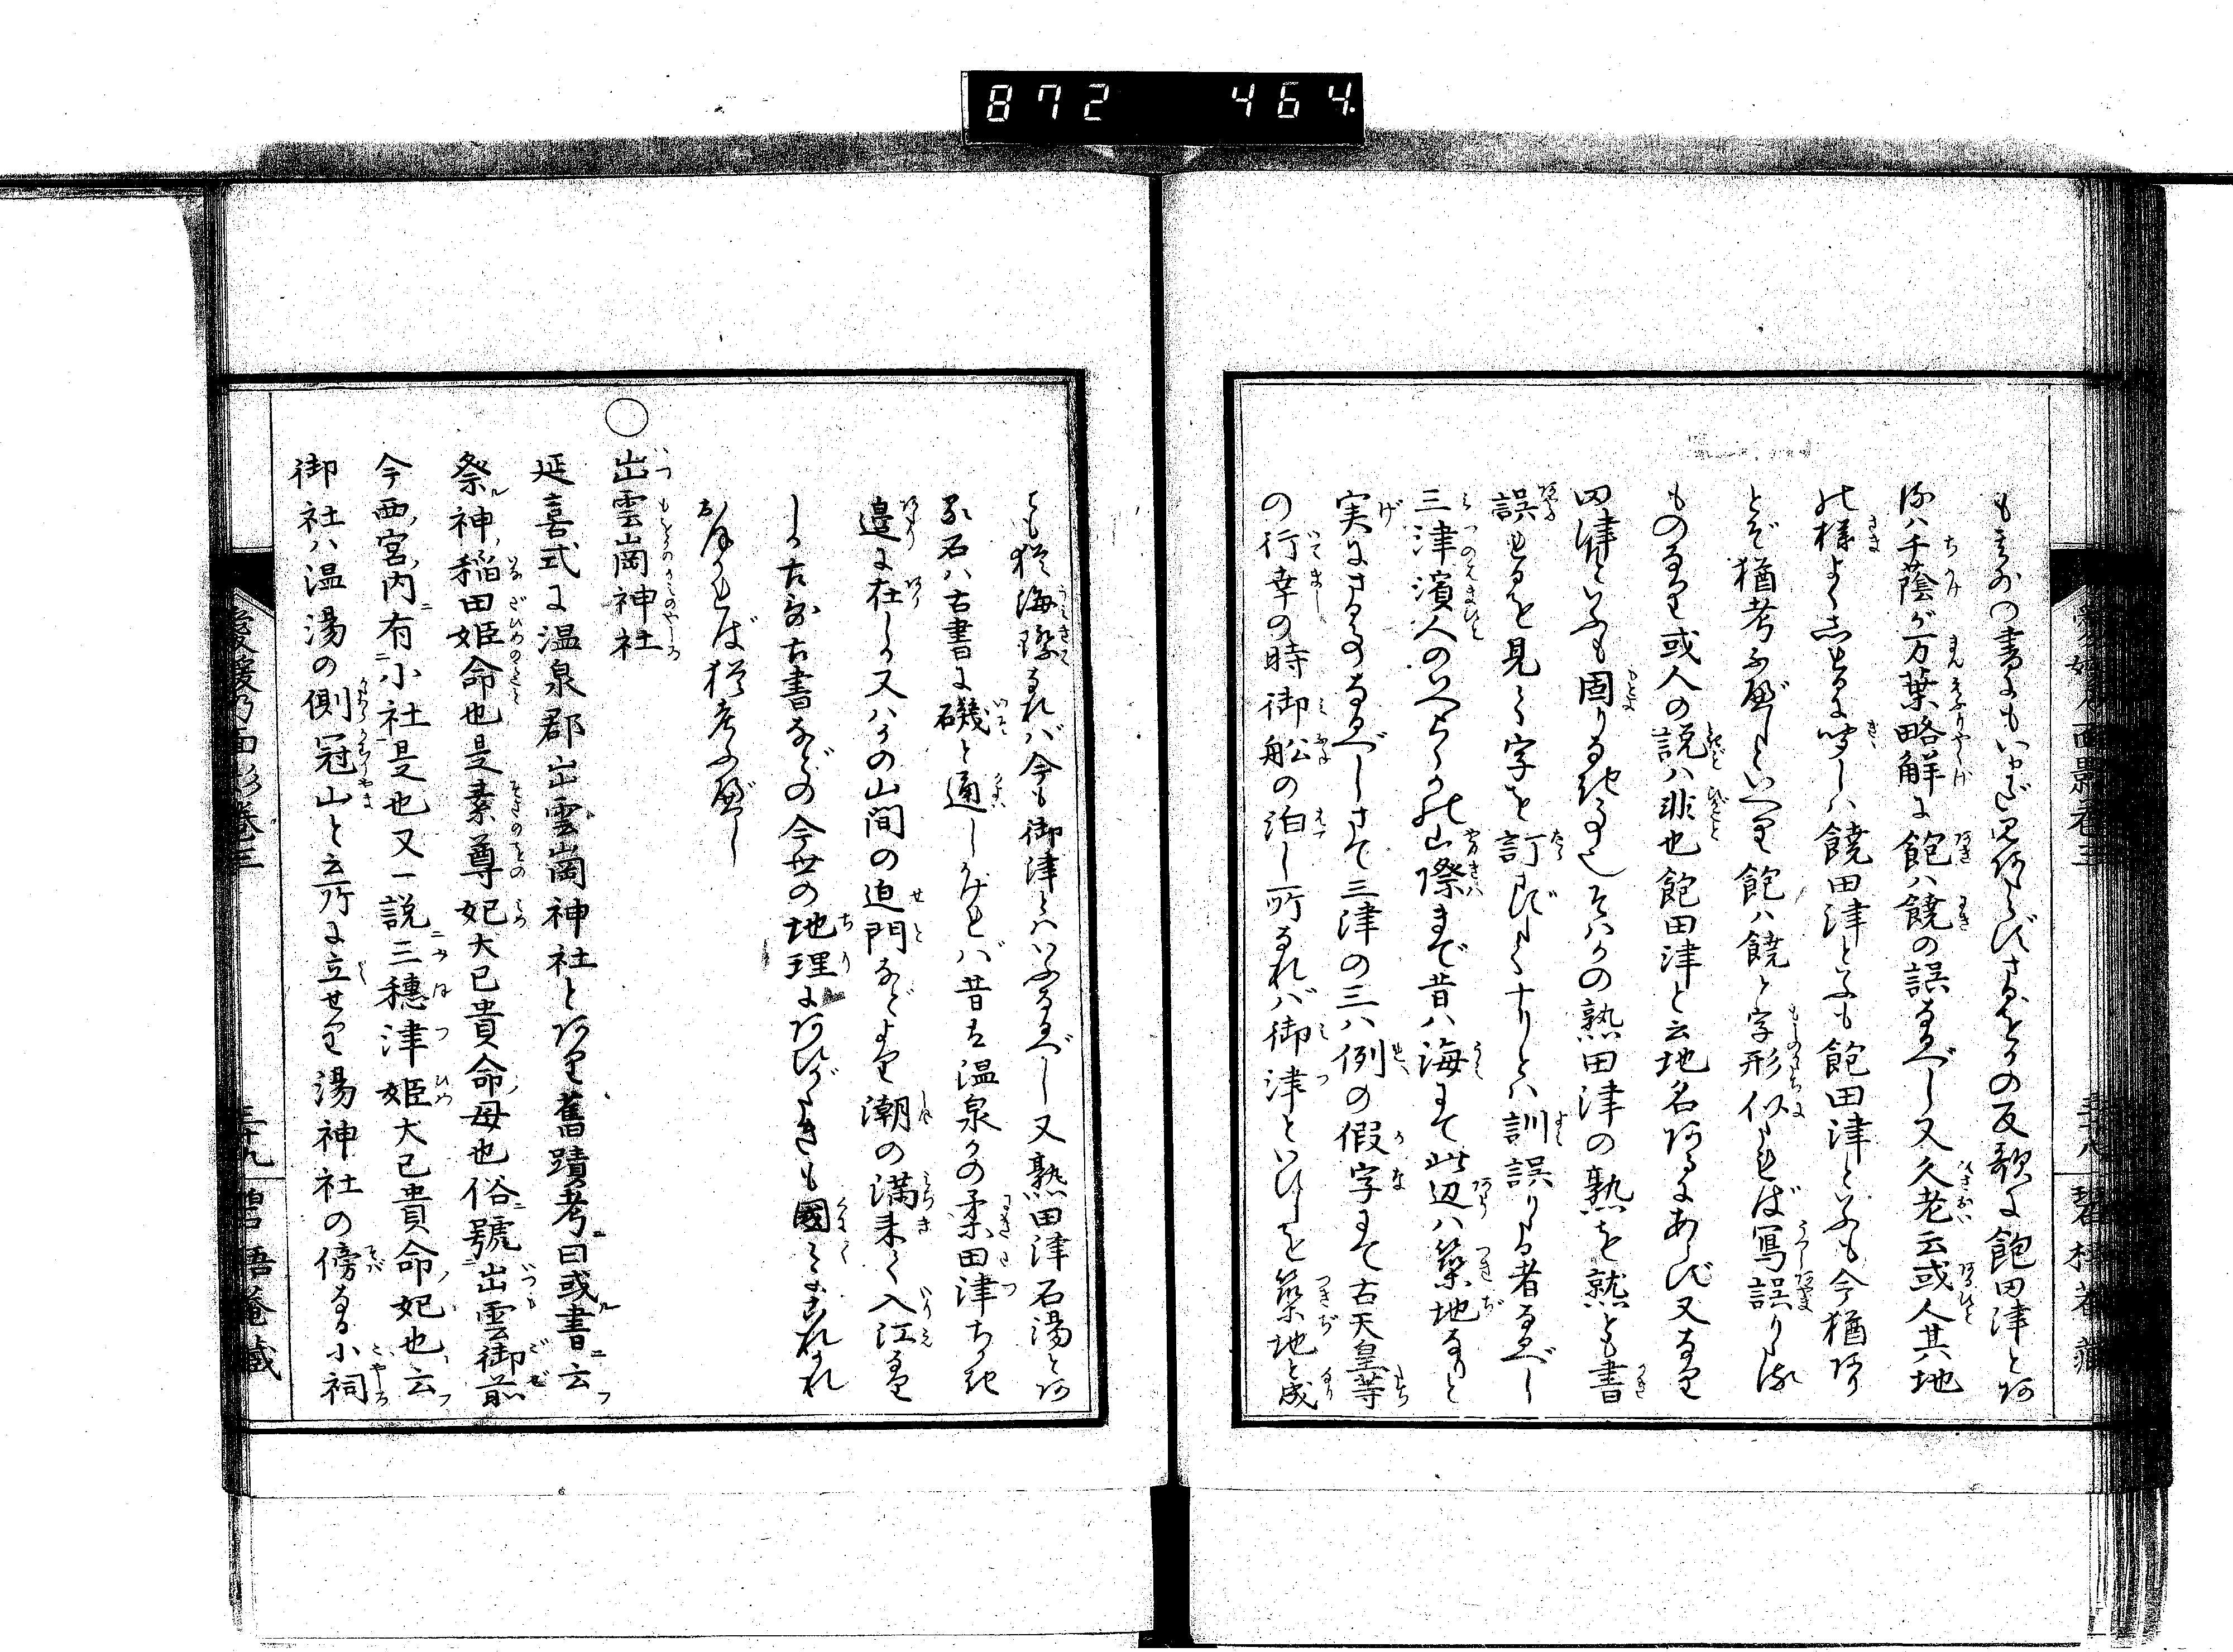 872 464
も其外の書にもいまだ見あたらずさるをかの反歌に飽田津とあ
るハ千蔭が万葉略解に飽ハ饒の誤なるべし又久老云或人其地
の様よくしれるに問しハ饒田津といふも飽田津といふも今猶あり
とぞ猶考ふべしといへり飽ハ饒と字形似たれば写誤りたる
ものなり或人の説ハ非也飽田津と云地名あるにあらず又なり
田津といふも固りなき事也そハかの熟田津の熟を就とも書
誤れるを見て字を訂さずしてナリとハ訓誤りたる者なるべし
三津濱人のいへらくこの山際まで昔ハ海にて此辺ハ築地なりと
実にさる事なるべしさて三津の三ハ例の假字にて古天皇等
の行幸の時御船の泊し所なれバ御津といひしを築地と成
ても猶海際なれバ今も御津とハいふなるべし又熟田津石湯とあ
る石ハ古書に磯と通しかけれバ昔は温泉かの柔田津ちかき
邉に在しか又ハかの山間の迫門などより潮の満来て入江なり
しか古歌古書などの今世の地理にあひがたきも國々にこれかれ
おほかれば猶考ふべし
○出雲崗神社
延喜式に温泉郡出雲崗神社とあり舊蹟考曰或書云
祭神稲田姫命也是素尊妃大己貴命母也俗號出雲御前
今西宮内有小社是也又一説三穗津姫大己貴命妃也云
御社ハ温湯の側冠山と云所に立せり湯神社の傍なる小祠
愛媛乃面影巻三
三十八
三十九
碧梧菴藏